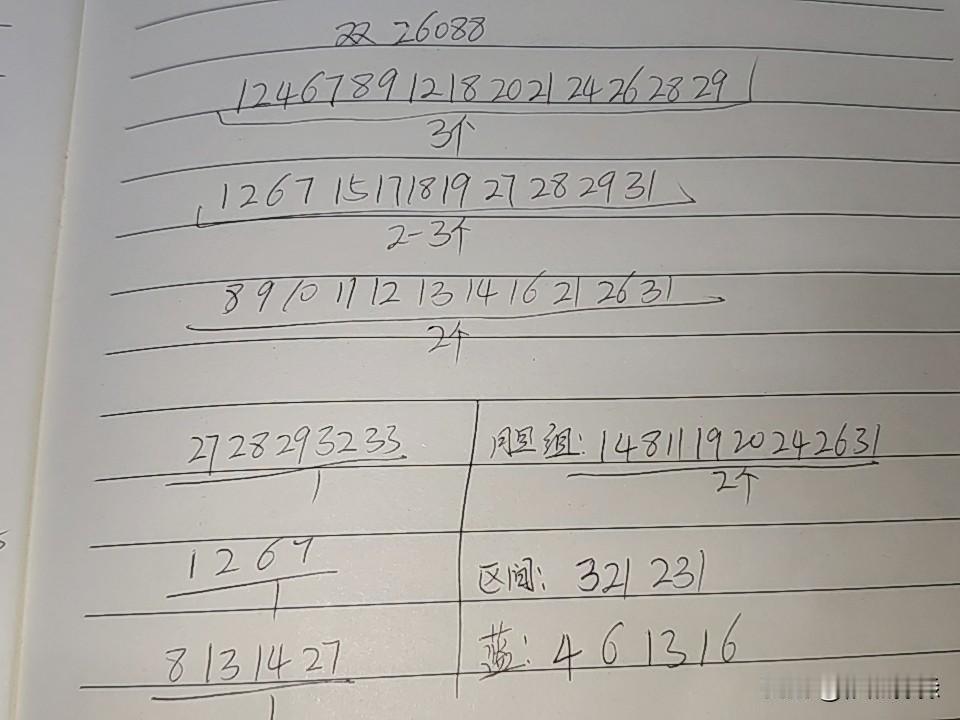 双 26088
1 2 4 6 7 8 9 12 18 20 21 24 26 28 29
3个
1 2 6 7 15 17 18 19 27 28 29 31
2-3个
8 9 10 11 12 13 14 16 21 26 31
2个
27 28 29 32 33
1
胆组: 1 4 8 11 19 20 24 26 31
2个
1 2 6 7
1
区间: 321 231
8 13 14 27
1
蓝: 4 6 13 16